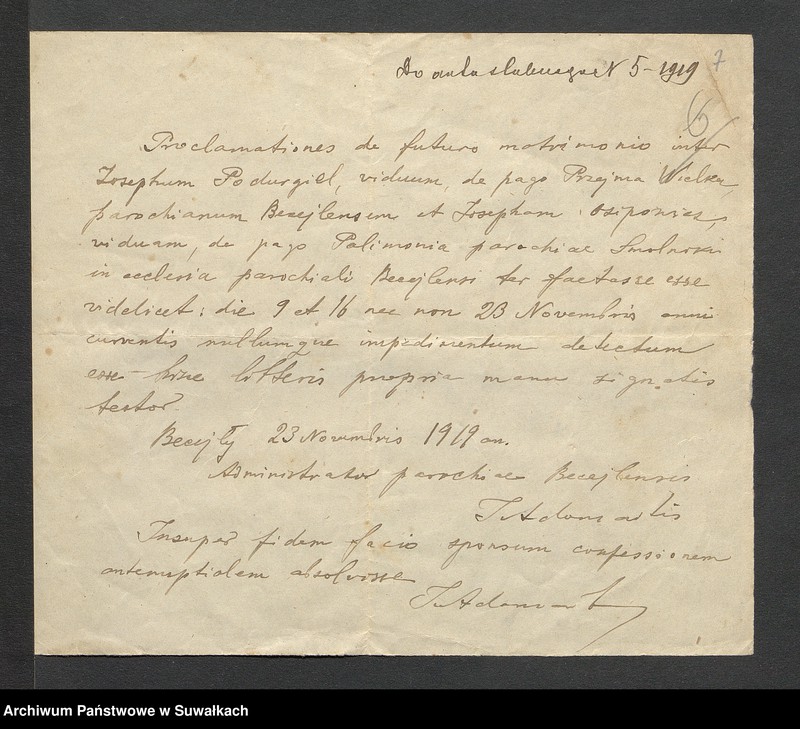 Do aktu slubnego N 5-1919 7
6
Proclamationes de futuro matrimonio inter
Josephum Podurgiel, viduum, de pago Przejma Wielka,
parochianum Becejlensem et Josepham Osipowicz,
viduam, de pago Polimonia parochiae Smolnski
in ecclesia parochiali Becejlensi ter factasse esse
videlicet: die 9 et 16 nec non 23 Novembris anni
currentis nullumque impedimentum detectum
esse hisce litteris propria manu signatis
testor.
Becejły 23 Novembris 1919 an.
Administrator parochiae Becejlensis
J. Adomaitis
Insuper fidem facio sponsum confessionem
antenuptialem absolvisse
Archiwum Państwowe w Suwałkach